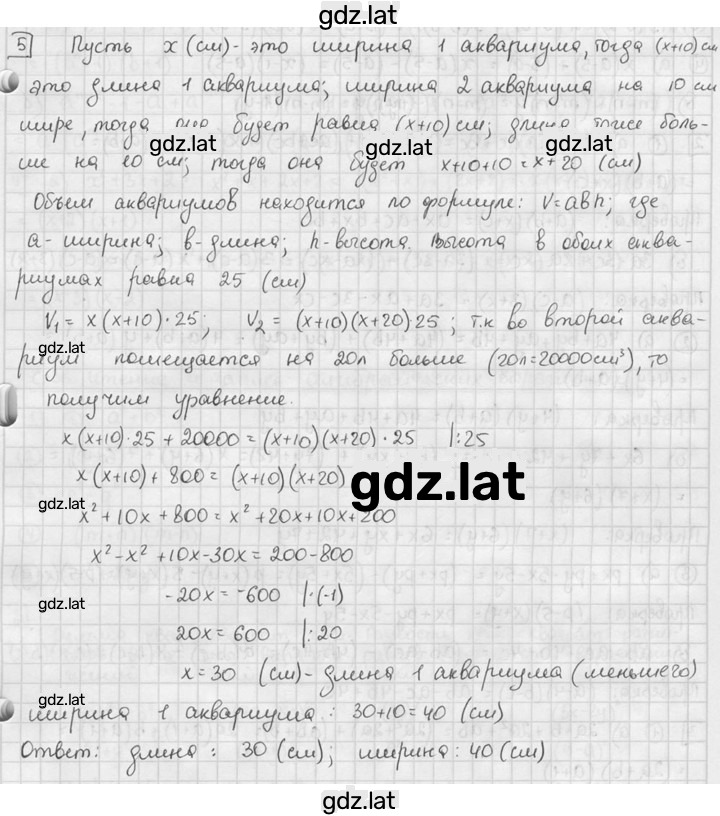 gdz.lat
5 Пусть x (см) - это ширина 1 аквариума, тогда (x+10) см
это длина 1 аквариума; ширина 2 аквариума на 10 см
шире, тогда она будет равна (x+10) см; длина тоже боль-
gdz.lat gdz.lat
ше на 10 см; тогда она будет x+10+10 = x+20 (см)
Объем аквариумов находится по формуле: V=aвh; где
a- ширина; в- длина; h- высота. Высота в обоих аква-
риумах равна 25 (см)
V₁ = x(x+10)·25; V₂ = (x+10)(x+20)·25; т.к во второй аква-
gdz.lat gdz.lat
риум помещается на 20л больше (20л=20000см³), то
получим уравнение.
x(x+10)·25 + 20000 = (x+10)(x+20)·25 |:25
x(x+10) + 800 = (x+10)(x+20)
gdz.lat
gdz.lat
x² + 10x + 800 = x² + 20x + 10x + 200
x² - x² + 10x - 30x = 200 - 800
-20x = -600 |·(-1)
gdz.lat
20x = 600 |:20
x = 30 (см) - длина 1 аквариума (меньшего)
gdz.lat
ширина 1 аквариума: 30+10=40 (см)
Ответ: длина: 30 (см); ширина: 40 (см)
gdz.lat